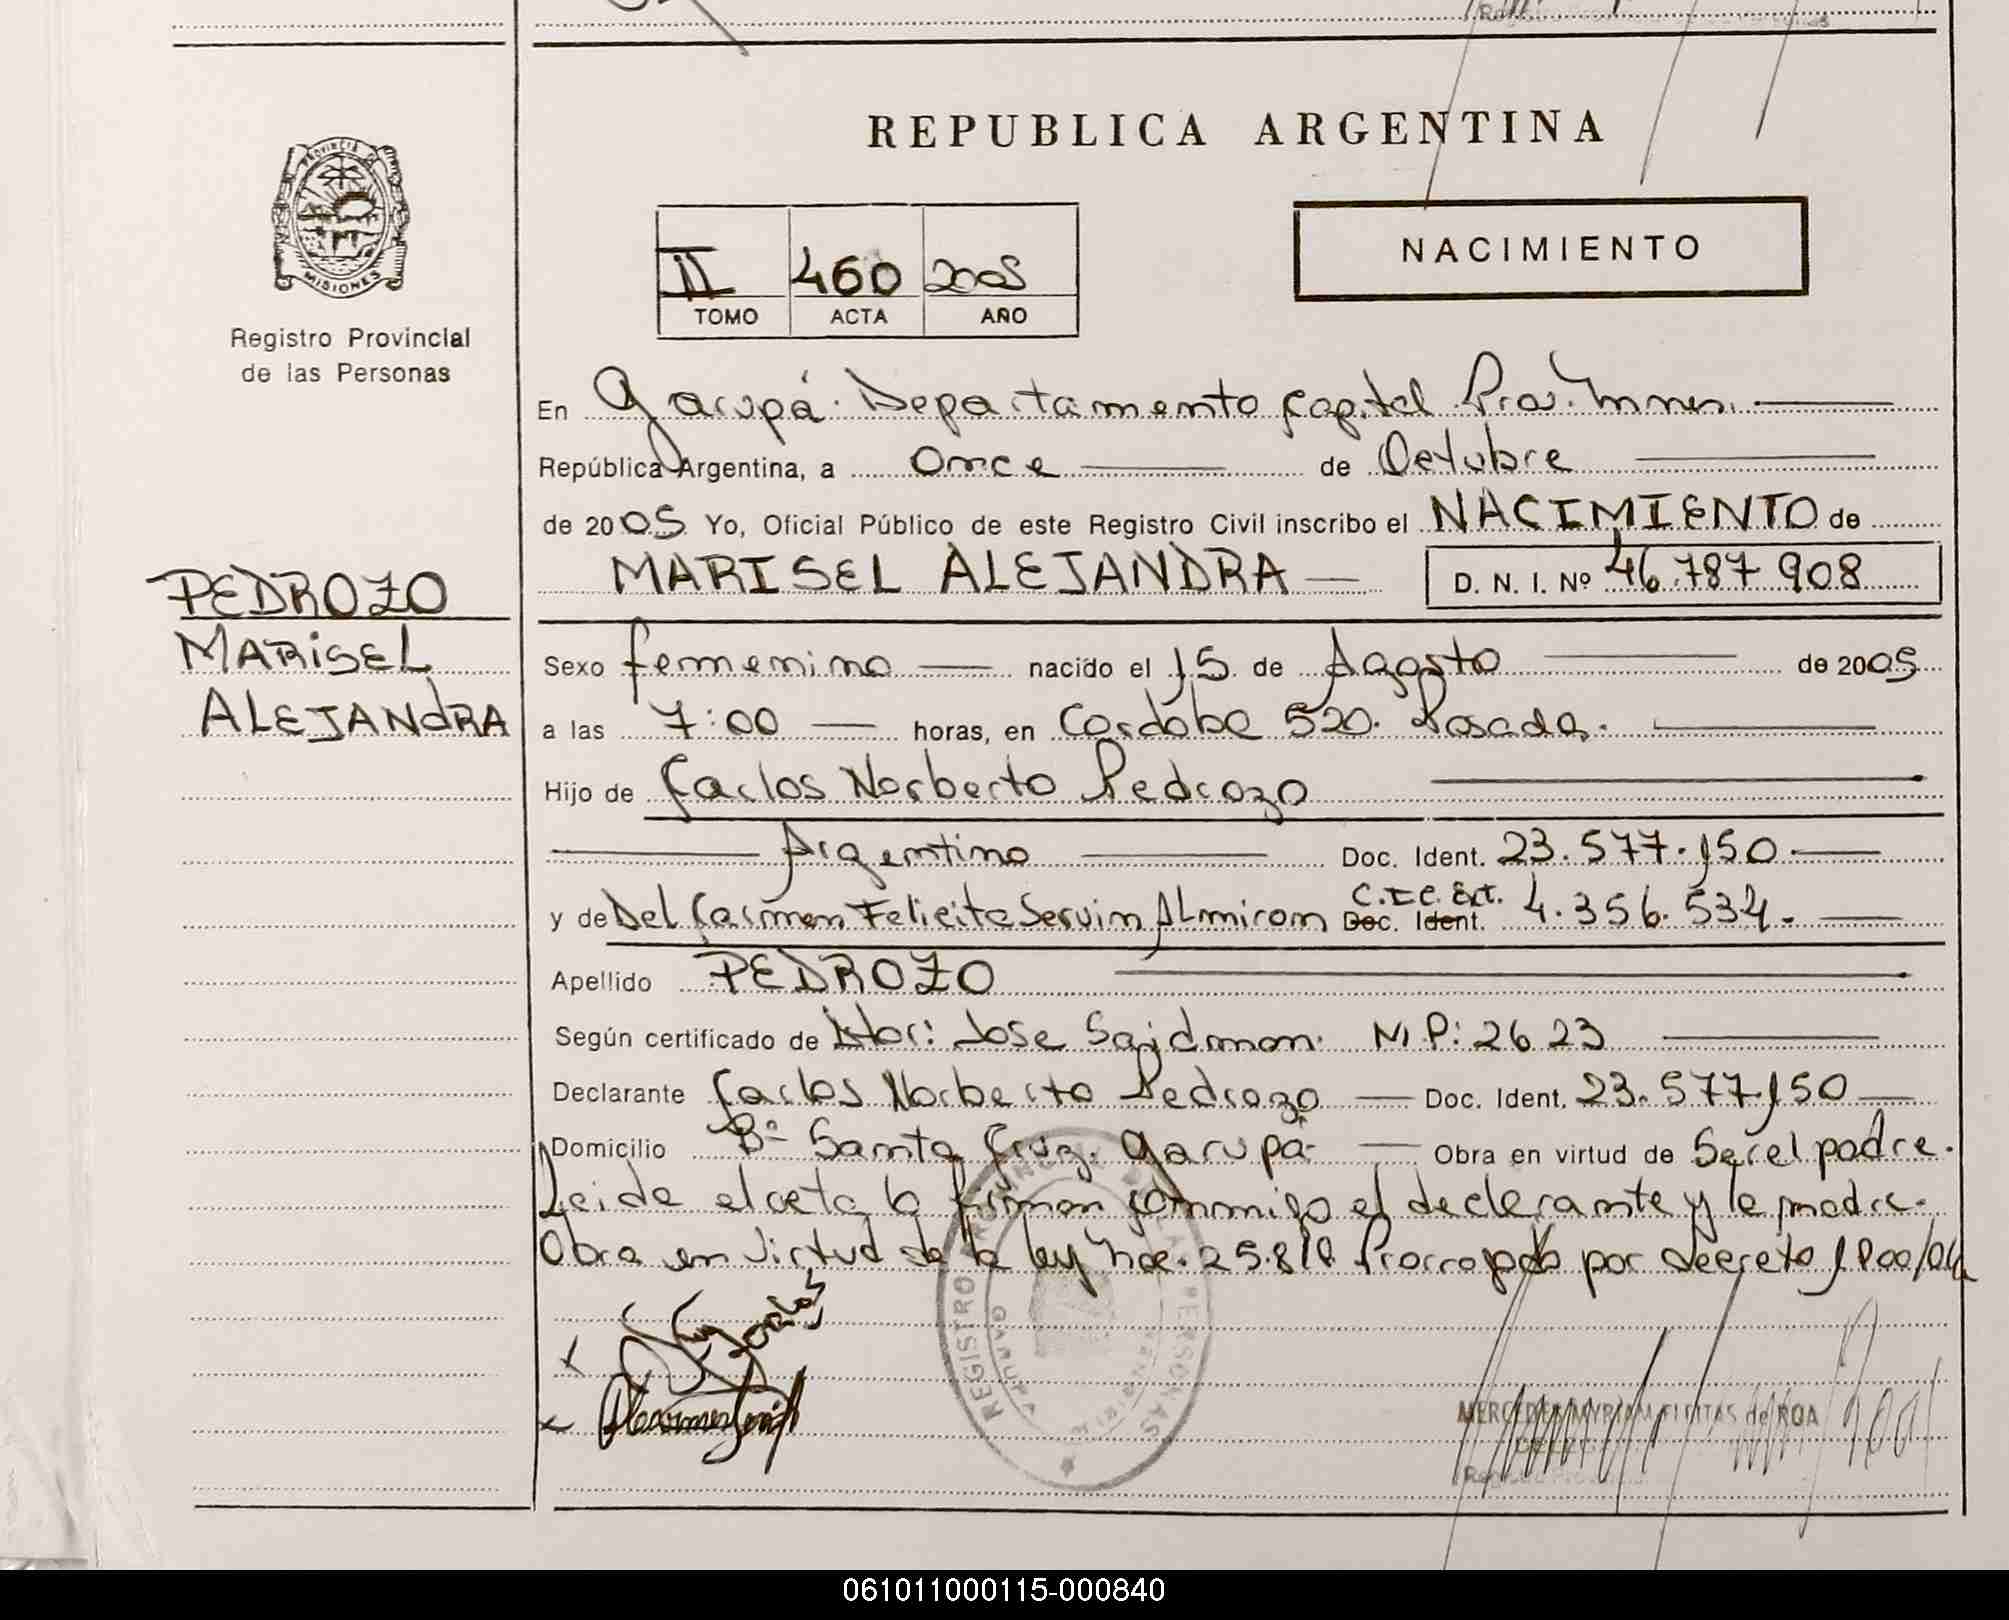 REPUBLICA ARGENTINA
PROVINCIA DE
MISIONES
Registro Provincial
de las Personas
NACIMIENTO
II 460 2005
TOMO ACTA AÑO
En Garupá Departamento Capital Prov. Mnes.
República Argentina, a Once de Octubre
de 2005 Yo, Oficial Público de este Registro Civil inscribo el NACIMIENTO de
MARISEL ALEJANDRA D. N. I. Nº 46.787 908
PEDROZO
MARISEL
ALEJANDRA
Sexo femenino nacido el 15 de Agosto de 2005
a las 7:00 horas, en Cordoba 520. Posadas.
Hijo de Carlos Norberto Pedrozo
Argentino Doc. Ident. 23.577.150
y de Del Carmen Felicita Servin Almiron C.I.C. Ext. Doc. Ident. 4.356.534.
Apellido PEDROZO
Según certificado de Dr: Jose M.P: 2623
Declarante Carlos Norberto Pedrozo Doc. Ident. 23.577.150
Domicilio Bº Santa Cruz. Garupá Obra en virtud de Ser el padre.
Leida el acta la firman conmigo el declarante y la madre.
Obra en virtud de la ley Nac. 25.819 Prorrogado por decreto 1800/04
REGISTRO PROVINCIAL DE LAS PERSONAS
GARUPA
MISIONES
MERCEDES MYRIAM FLEITAS de ROA
061011000115-000840